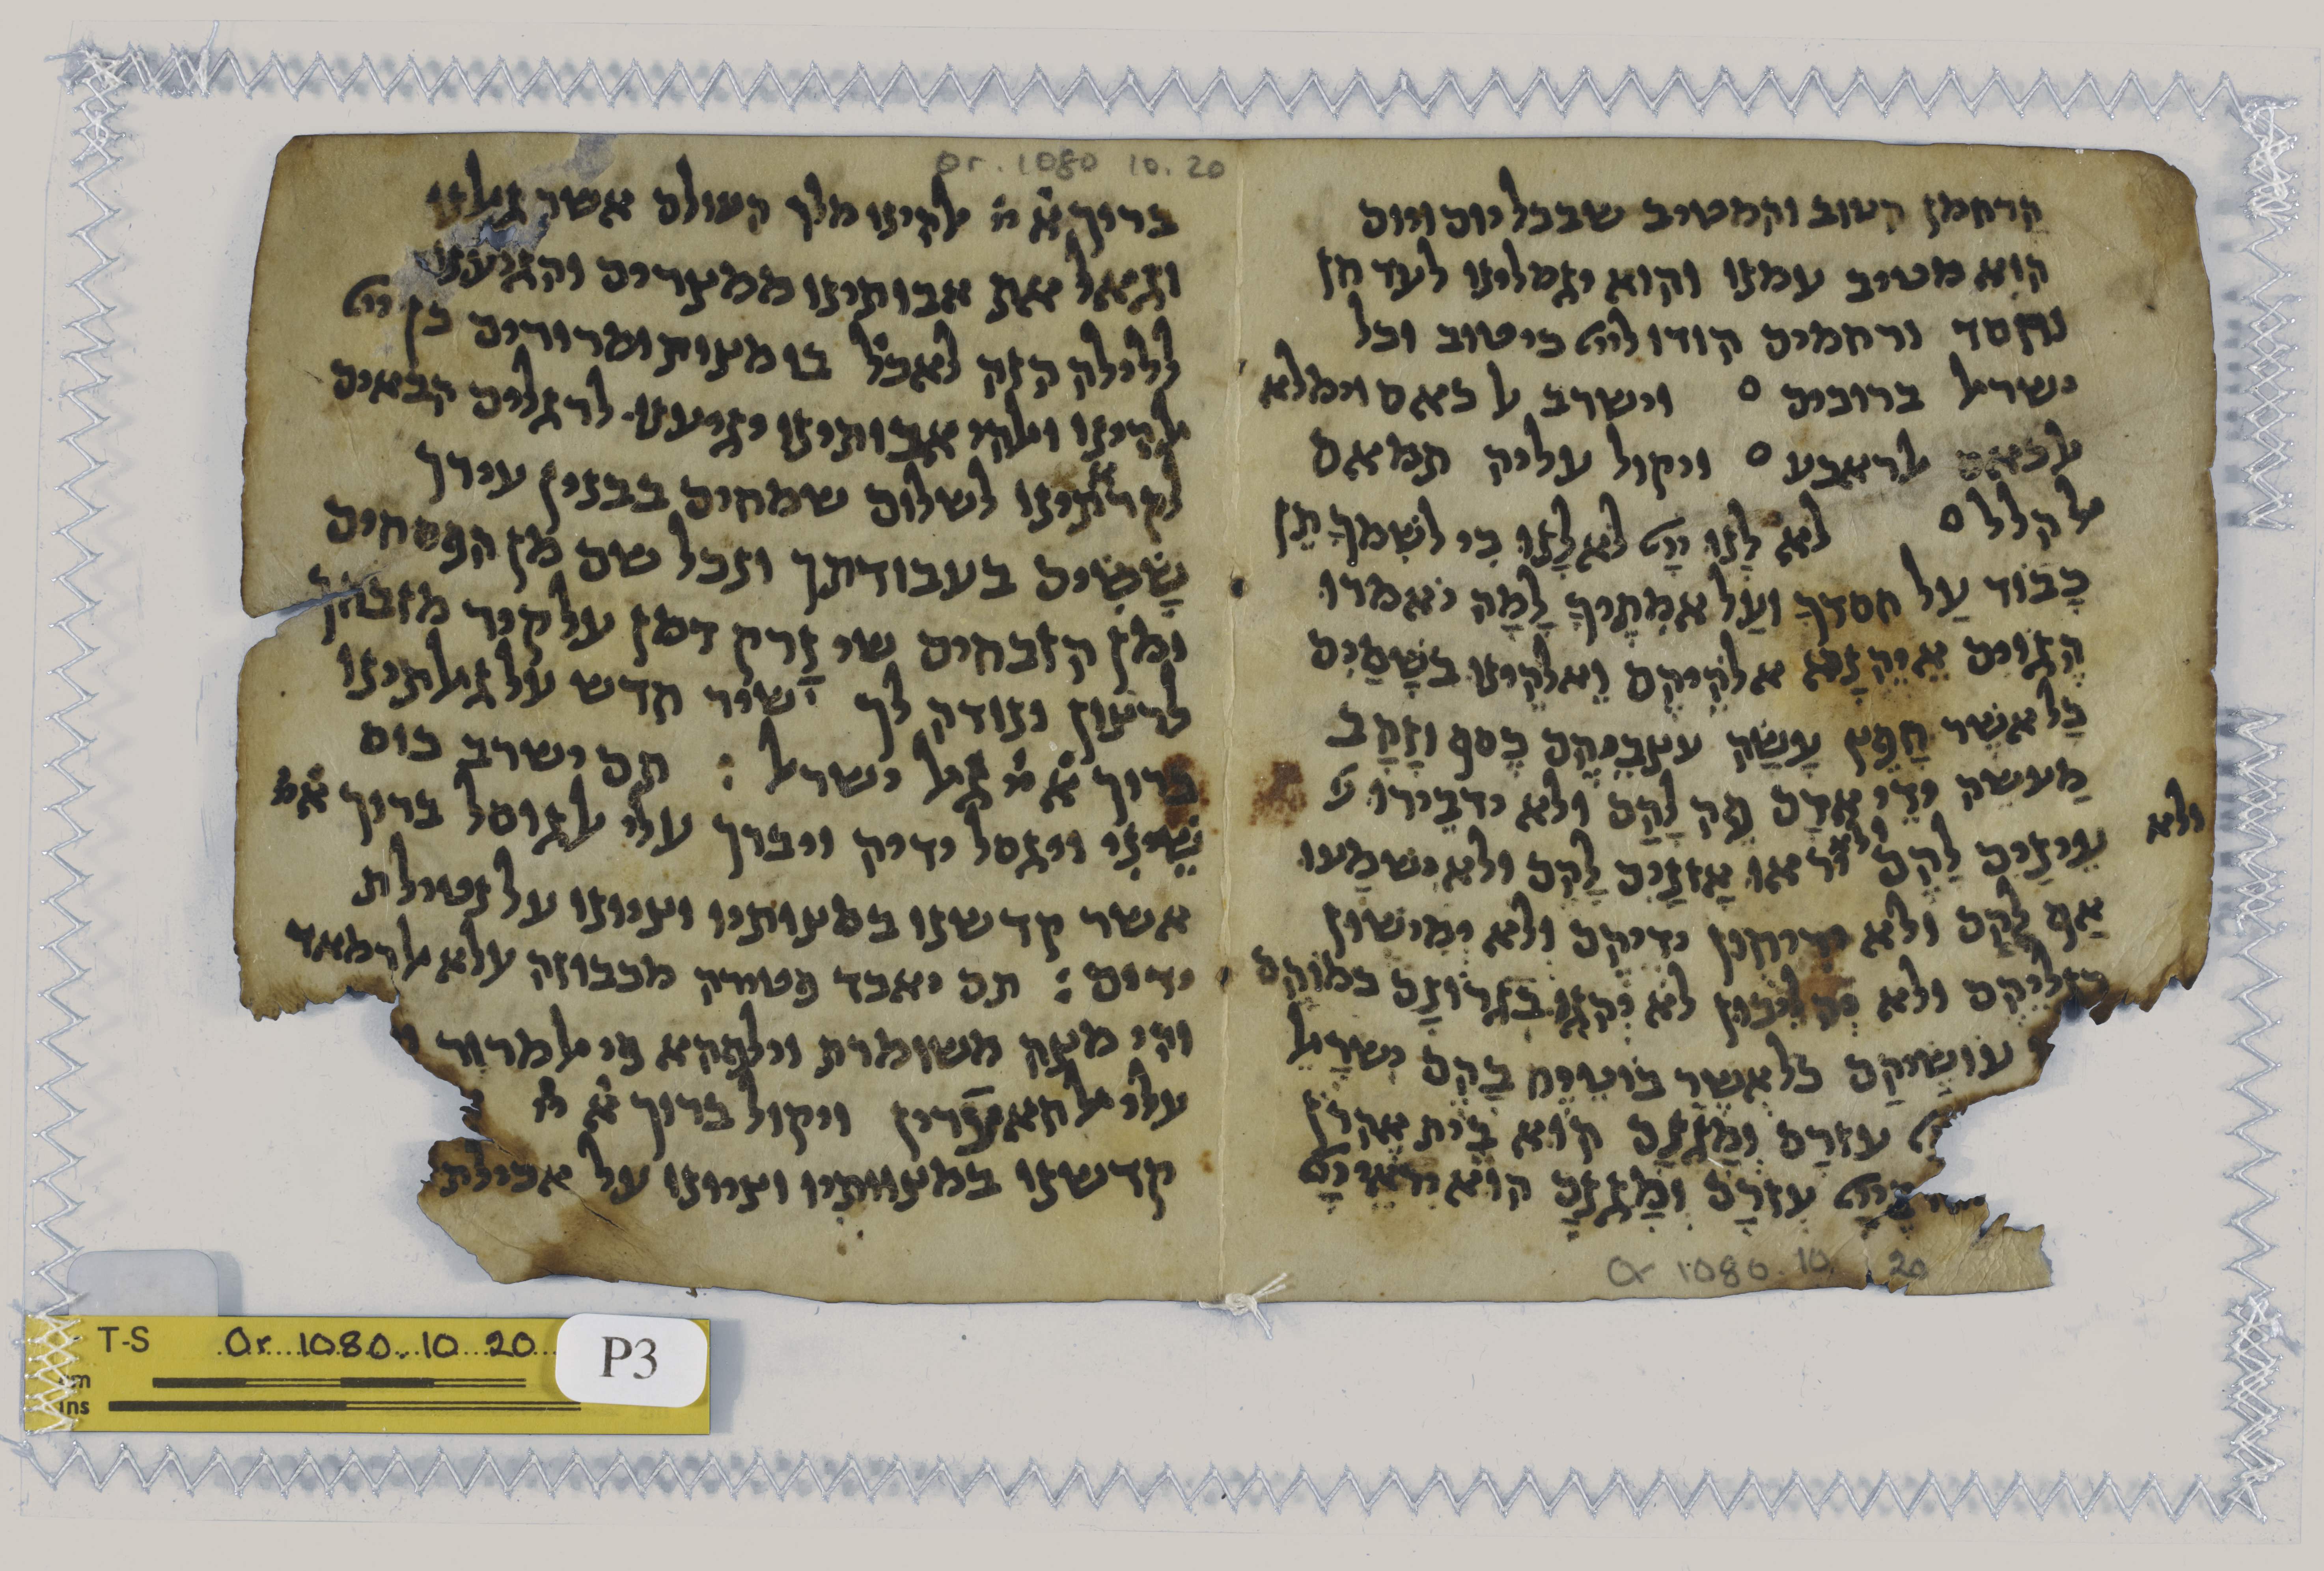 Or. 1080 10. 20
הרחמן הטוב והמטיב שבכל יום ויום
הוא מטיב עמנו והוא יגמלינו לעד חן
וחסד ורחמים הודו לייי כי טוב וכל
ישראל ברוכים ο וישרב אל כאס וימלא
אלכאס אלראבע ο ויקול עליה תמאם
אל הלל ο לֹא לָנוּ יְיָ לֹא לָנוּ כִּי לְשִׁמְךָ תֵּן
כָּבוֹד עַל חסדך וְעַל אֲמִתֶּיךָ לָמָּה יֹאמרו
הַגּוֹיִם אַיֵּה נָא אלהֵיהֶם וֵאלֹהֵינוּ בשָׁמַיִם
כל אשֶׁר חָפֵץ עָשָׂה עצבֵיהֶם כֶּסֶף וְזָהָב
מַעשֵׂה יְדֵי אָדָם פֶּה לָהֶם ולא ידבֵּירוּ
עֵינַיִם לָהֶם ולא יראוּ אָזנַיִם לָהֶם ולא ישׁמָעוּ
ולא
אַף לָהֶם ולא יריחון ידֵיהֶם ולא יְמִישׁוּן
רגליהֶם ולא יְהַלֵּיכוּן לא יֶהגוּ בִּגרוֹנָם כמוֹהֶם
עוֹשֵׂיהֶם כל אשֶׁר בּוֹטֵיחַ בָּהֶם יִשׂרָאֵל
עזרָם וּמָגִנָּם הוּא בֵּית אַהֲרֹן
בייָ עֶזרָם וּמָגִנָּם הוּא יראֵי ייָ
Or 1080. 10. 20
ברוך אֹ יֹ אלהינו מלך העולם אשר גאלנו
וגאל את אבותינו ממצרים והגיענו
ללילה הזה לאכל בו מצות ומרורים כן ייי
אלהינו ואלהי אבותינו יגיענו לרגלים הבאים
לקראתינו לשלום שמחים בבנין עירך
שָׂשִׂים בעבודתך ונכל שם מן הפסחים
ומן הזבחים שי זָרק דמן על קיר מזבחך
לרצון ונודה לך שיר חדש על גאלתינו
ברוך אֹ יֹ גאל ישראל : תם ישרב כוס
שֵׁינִי ויגסל ידיה ויברך עלי אלגוסל ברוך אֹ יֹ
אשר קדשנו במצותיו וציונו על נטילת
ידים : תם יאכד פטירה מכבוזה עלא אלרמאד
והי מצה משומרת וילפהא פי אלמרור
עלי ויקול ברוך אֹ יֹ
קדשנו במצוותיו וציונו על אכילת
T-S Or. 1080. 10 20
cm
ins
P3